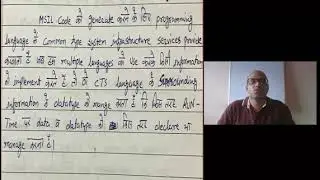 MSIL Code को generate करने के लिए programming
language के Common type system infrastructure services provide
करता है जो की multiple languages को use करके किसी information
को implement करते हैं तो CTS language के surrounding
information के datatype को manage करता है कि किस तरह RUN-
Time पर data के datatype को किस तरह declare या
manage करना है।